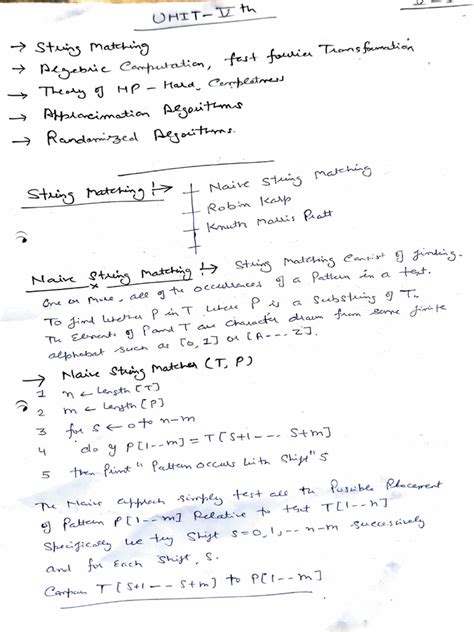 UNIT-V th
→ String Matching
→ Algebric Computation, fast fourier Transformation
→ Theory of NP-Hard, Completness
→ Approximation Algorithms
→ Randomized Algorithms.
String Matching :→ Naive String Matching
Robin Karp
Knuth Morris Pratt
Naive String Matching :→ String Matching Consist of finding.
One or More, all of the occurrences of a Pattern in a text.
To find whether P in T where P is a Substring of T.
The Elements of P and T are Character drawn from some finite
alphabet such as [0,1] or [A---Z].
→ Naive String Matcher (T, P)
1 n ← Length [T]
2 m ← Length [P]
3 for S ← 0 to n-m
4 do if P[1--m] = T[S+1--- S+m]
5 then Print "Pattern occurs with Shift" S
The Naive approach simply test all the Possible Placement
of Pattern P[1--m] Relative to text T[1--n]
Specifically we try Shift s=0,1,-- n-m successively
and for Each Shift, S.
Compare T[S+1 --- S+m] to P[1--m]